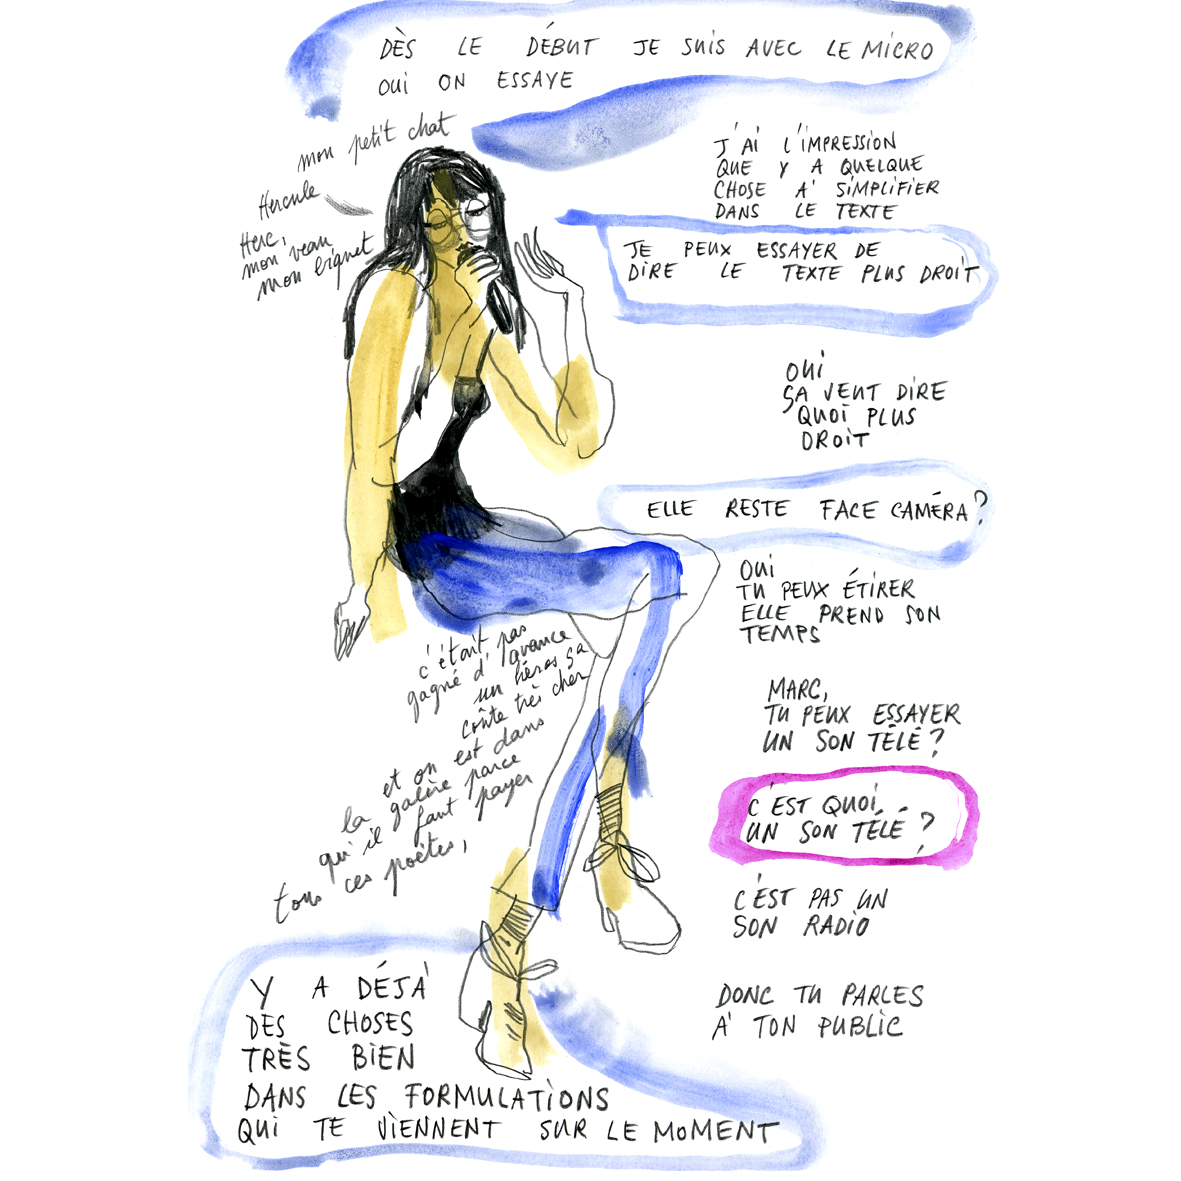 DÈS LE DÉBUT JE SUIS AVEC LE MICRO
OUI ON ESSAYE
mon petit chat
Hercule
Herc,
mon veau
mon biquet
J'AI L'IMPRESSION
QUE Y A QUELQUE
CHOSE À SIMPLIFIER
DANS LE TEXTE
JE PEUX ESSAYER DE
DIRE LE TEXTE PLUS DROIT
OUI
ÇA VEUT DIRE
QUOI PLUS
DROIT
ELLE RESTE FACE CAMÉRA ?
OUI
TU PEUX ÉTIRER
ELLE PREND SON
TEMPS
c'était pas
gagné d'avance
un héros ça
coûte très cher
et on est dans
la galère parce
qu'il faut payer
tous ces poètes,
MARC,
TU PEUX ESSAYER
UN SON TÉLÉ ?
C'EST QUOI
UN SON TÉLÉ ?
C'EST PAS UN
SON RADIO
DONC TU PARLES
À TON PUBLIC
Y A DÉJÀ
DES CHOSES
TRÈS BIEN
DANS LES FORMULATIONS
QUI TE VIENNENT SUR LE MOMENT